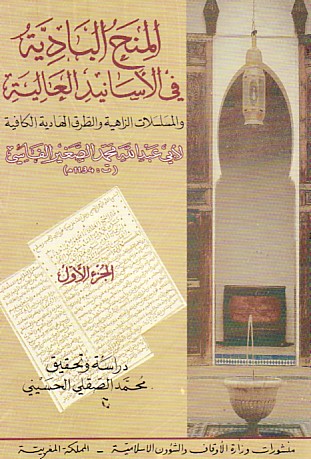 المنح البادية
في الأسانيد العالية
والمسلسلات الزاهية والطرق الهادية الكافية
لأبي عبد الله محمد الصغير الفاسي
(ت: 1134هـ)
الجزء الأول
دراسة وتحقيق
محمد الصقلي الحسيني
منشورات وزارة الأوقاف والشؤون الإسلامية - المملكة المغربية